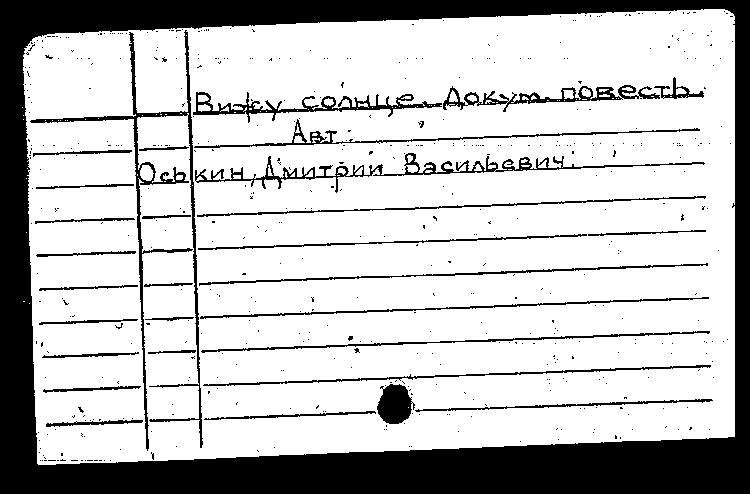 Вижу солнце. Докум. повесть.
Авт.:
Оськин, Дмитрий Васильевич.